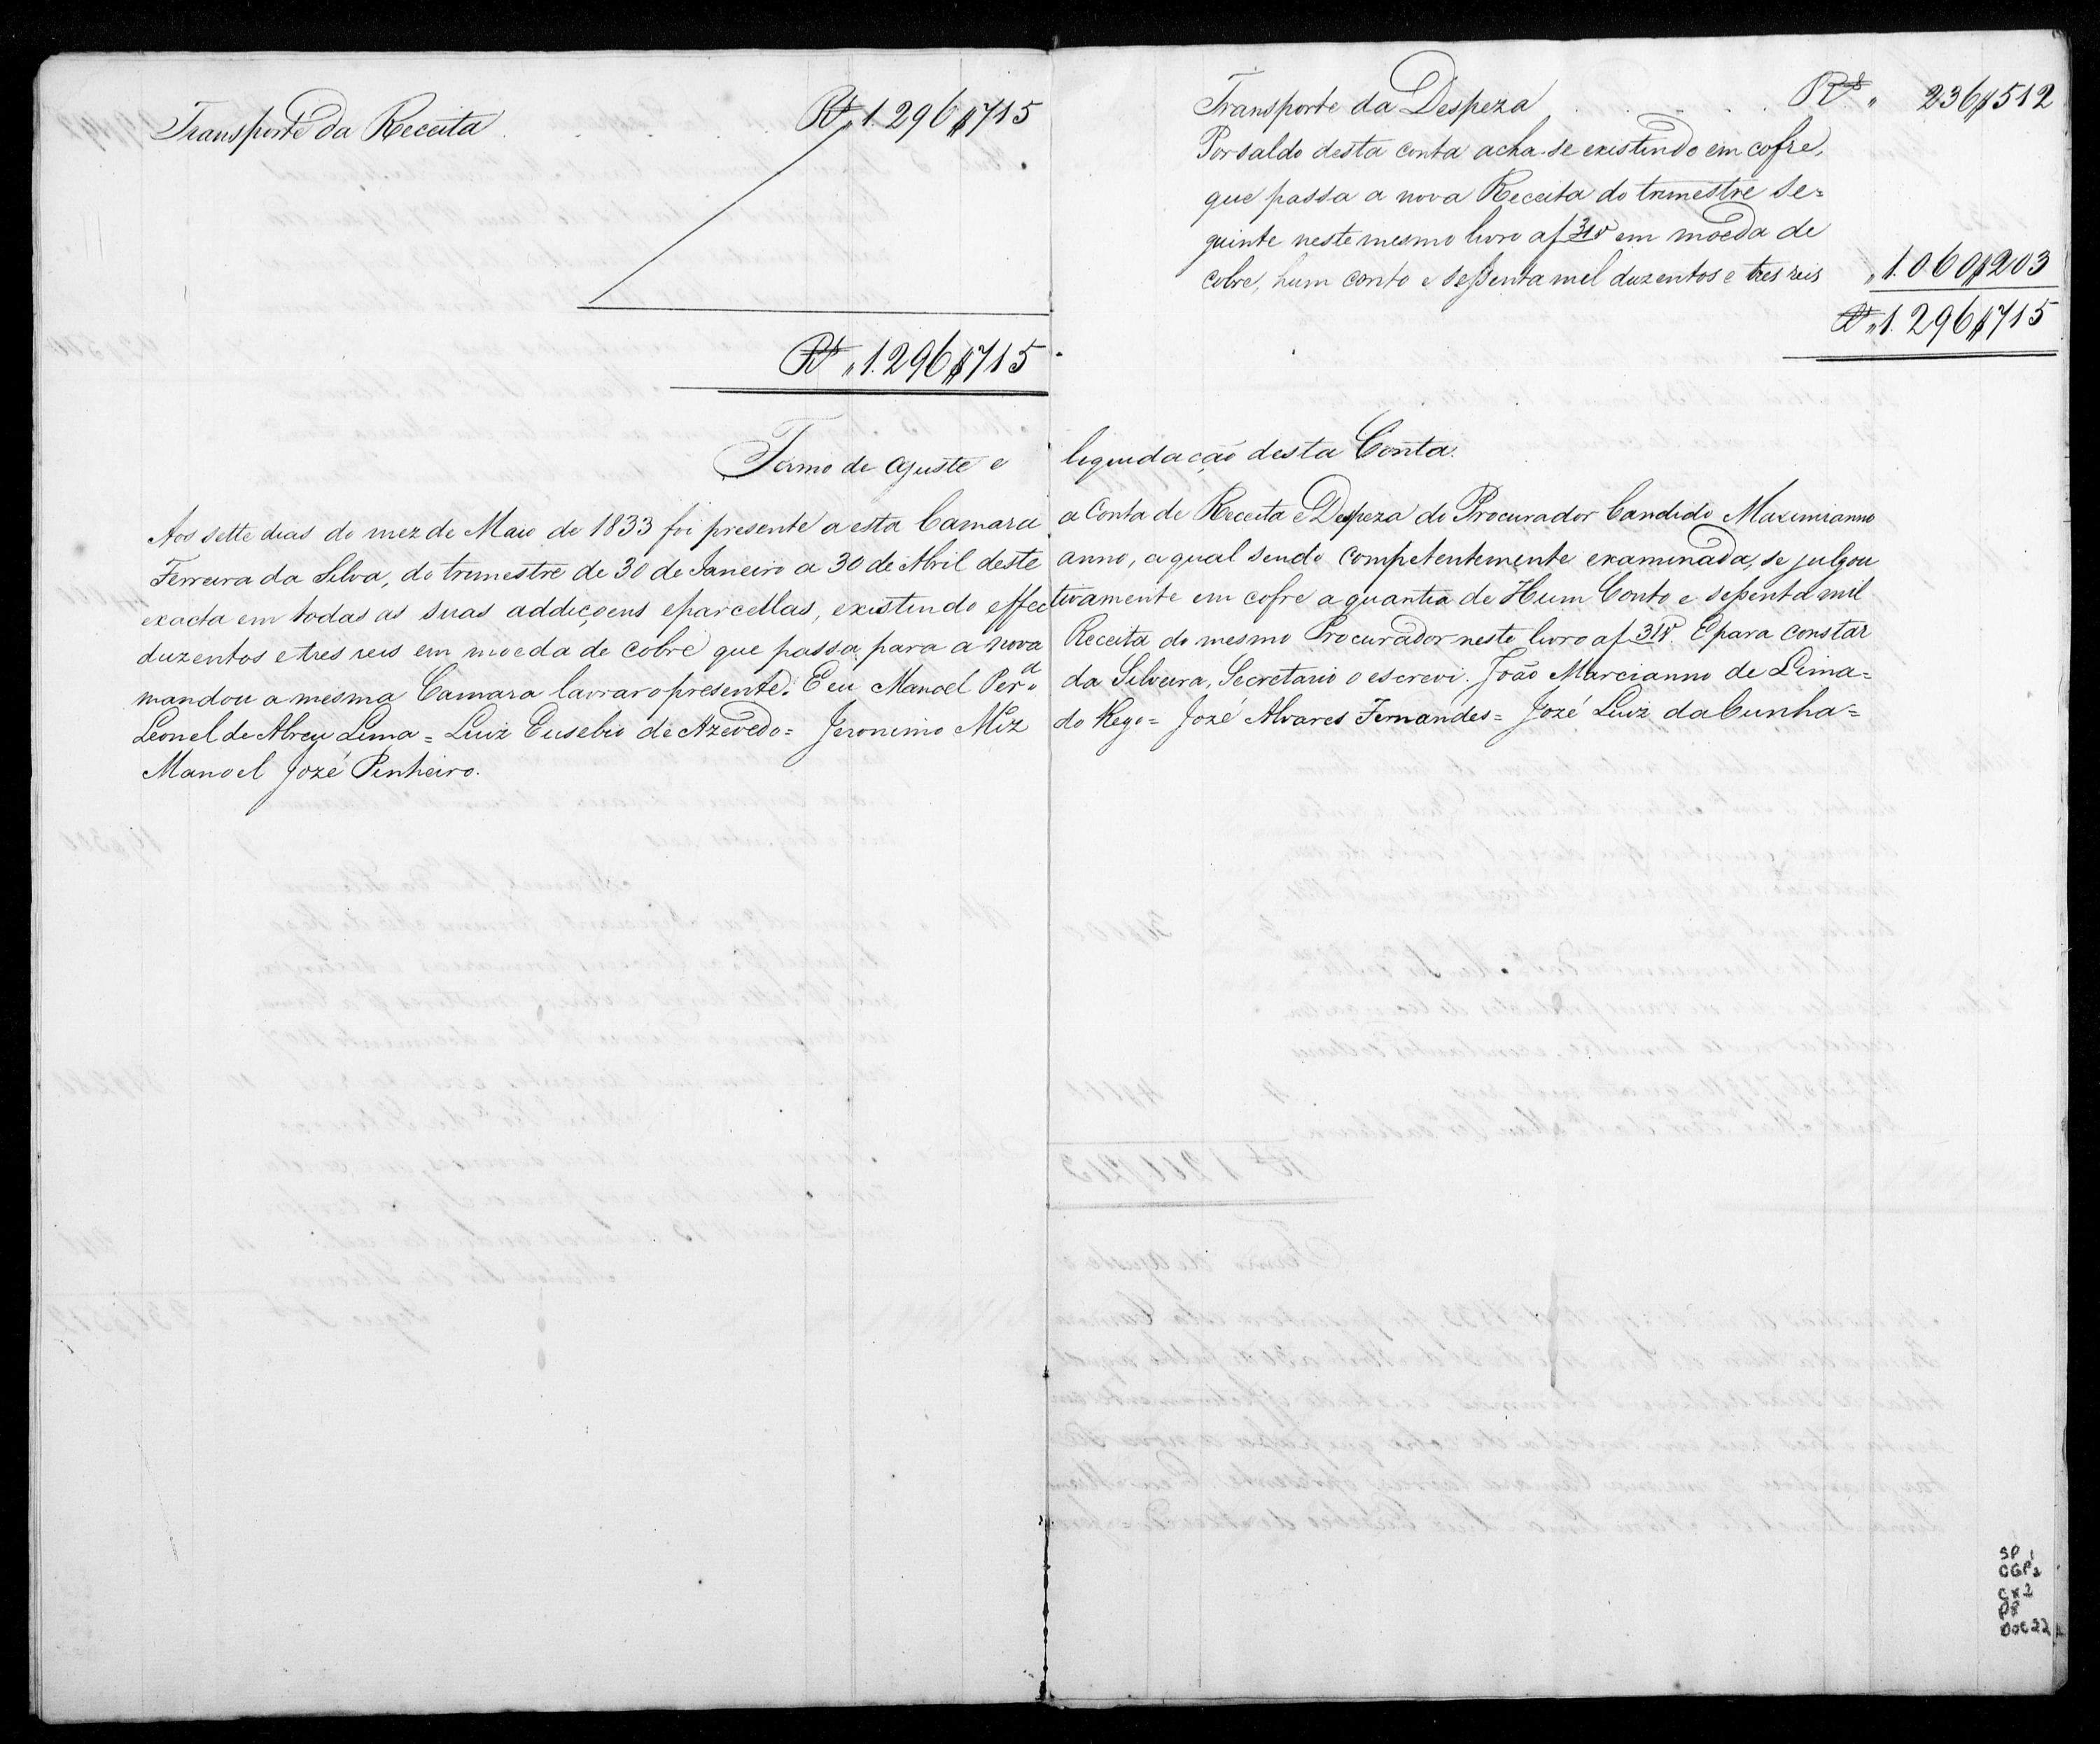 Transporte da Receita . . . . R.s „ 1.296$715
R.s „ 1.296$715
Transporte da Despeza . . . . R.s „ 236$512
Por saldo desta conta acha-se existindo em cofre,
que passa a nova Receita do trimestre se=
guinte neste mesmo livro a f 31v em moeda de
cobre, hum conto e seſsenta mil duzentos e tres reis „ 1.060$203
R.s „ 1.296$715
Termo de ajuste e liquidacaõ desta Conta.
Aos sette dias do mez de Maio de 1833 foi presente a esta Camara a Conta de Receita e Despeza do Procurador Candido Maximianno
Ferreira da Silva, do trimestre de 30 de Janeiro a 30 de Abril deste anno, a qual sendo competentemente examinada, se julgou
exacta em todas as suas addiçoens e parcellas, existindo effectivamente em cofre a quantia de Hum Conto e seſsenta mil
duzentos e tres reis em moeda de cobre que passa para a nova Receita do mesmo Procurador neste livro a f 31v. E para constar
mandou a mesma Camara lavrar o presente. E eu Manoel Per.a da Silveira, Secretario o escrevi. João Marcianno de Lima=
Leonel de Abreu Lima = Luiz Eusebio de Azevedo = Jeronimo Miz do Rego = Jozé Alvares Fernandes = Jozé Luiz da Cunha =
Manoel Jozé Pinheiro.
SP 1
CGP 2
CX 2
P2
DOC 22